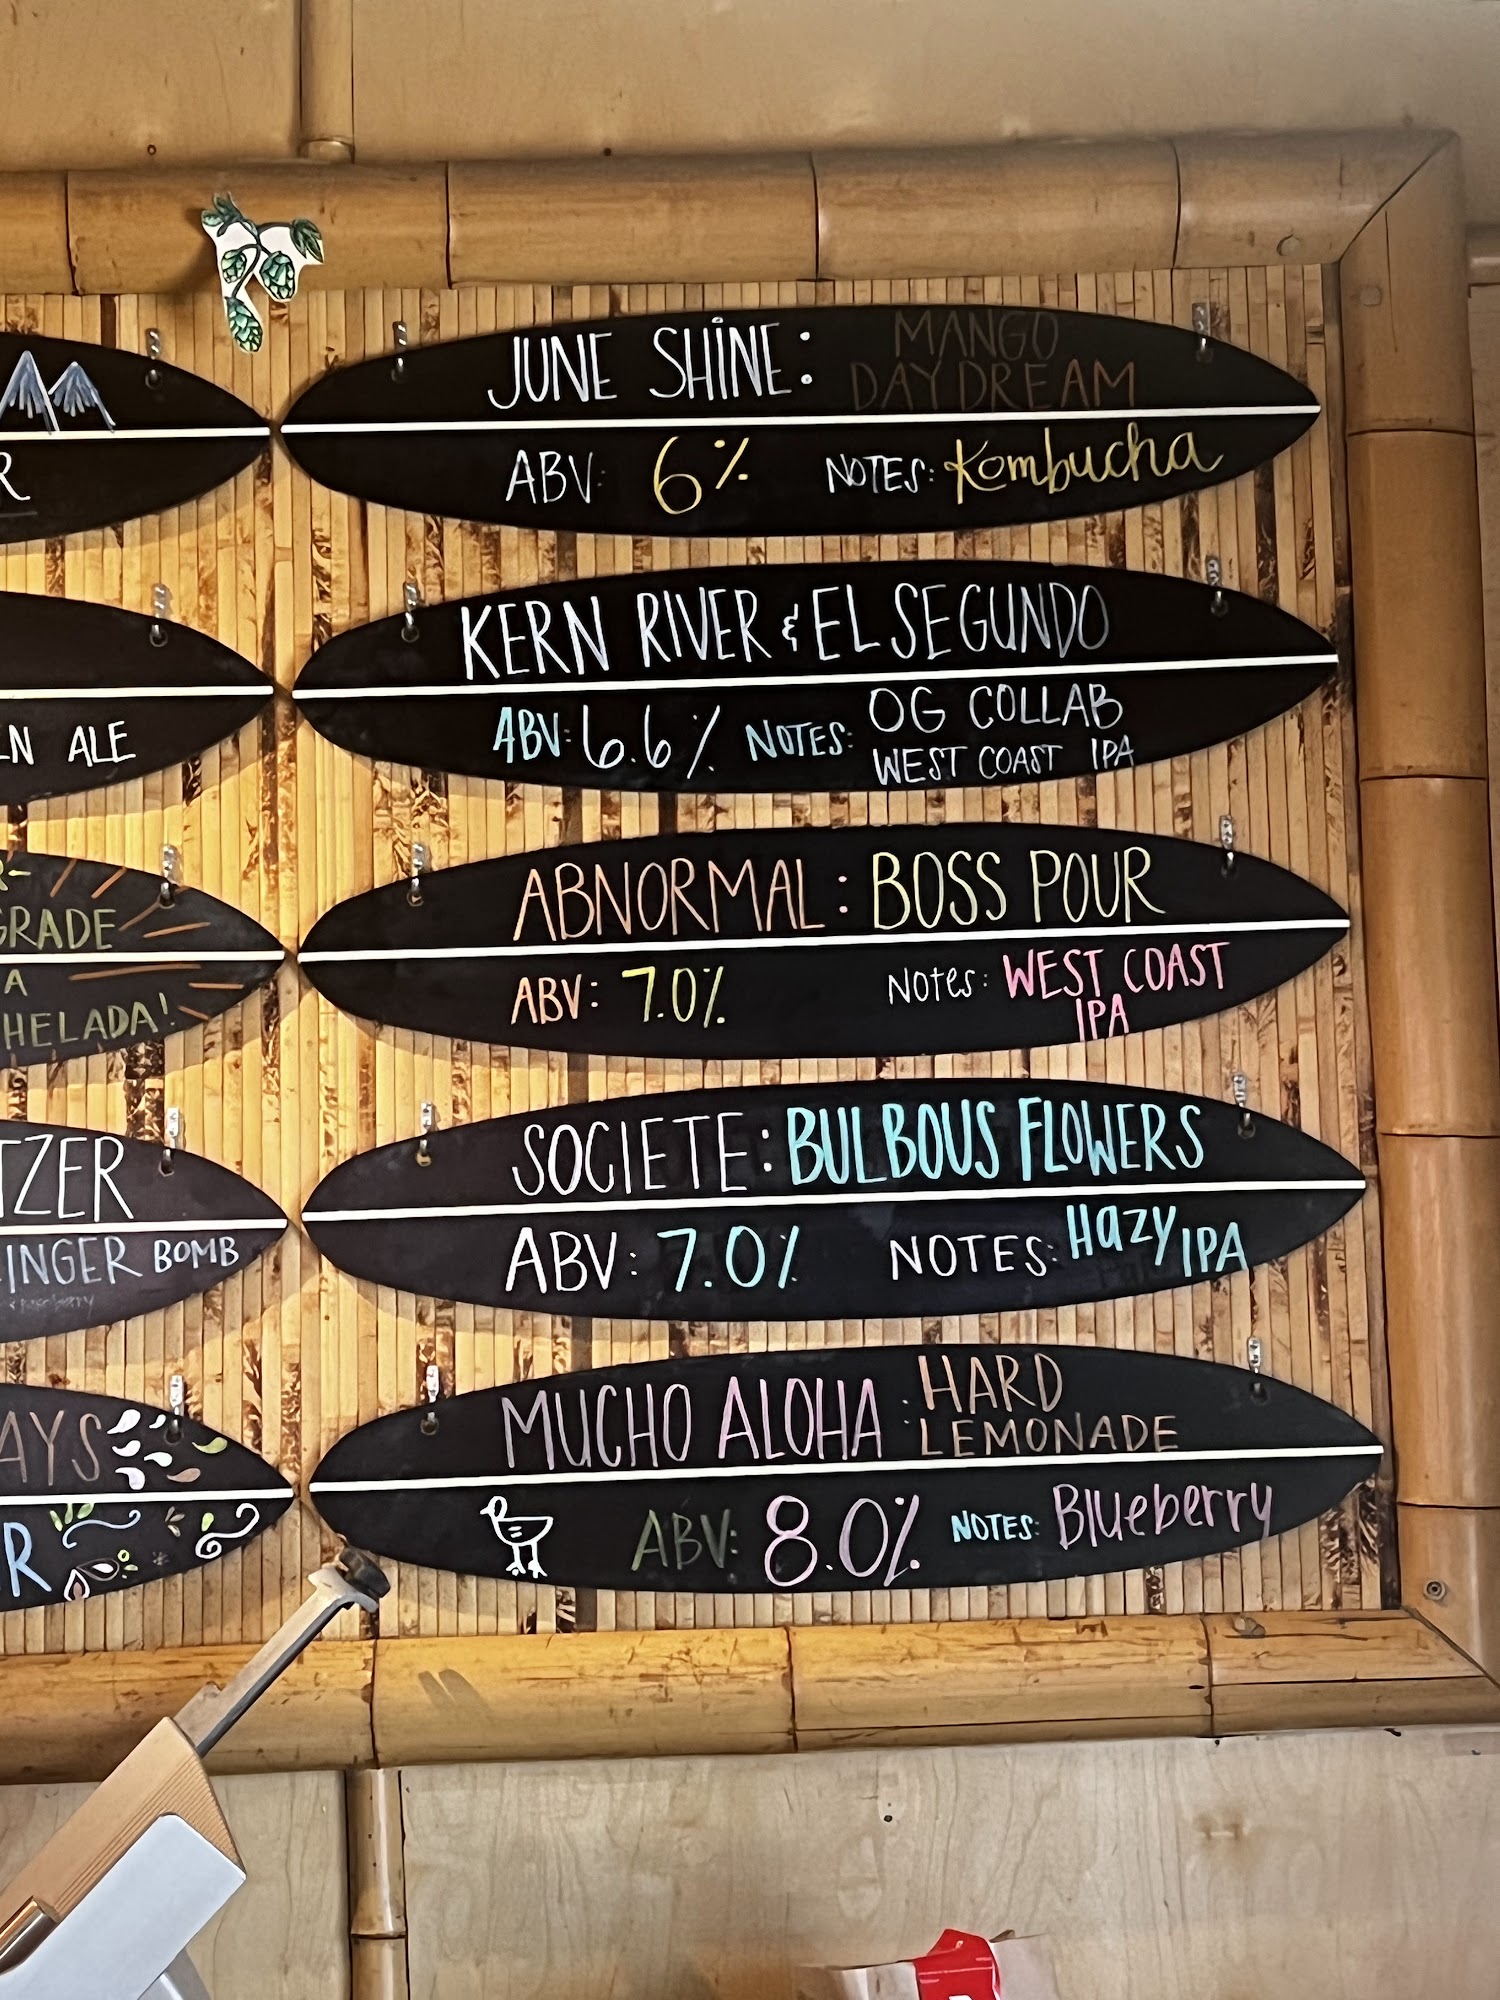 R
LN ALE
R-
GRADE
A
HELADA!
TZER
INGER BOMB
AYS
R
JUNE SHINE: MANGO
DAYDREAM
ABV: 6% NOTES: Kombucha
KERN RIVER & EL SEGUNDO
ABV: 6.6% NOTES: OG COLLAB
WEST COAST IPA
ABNORMAL: BOSS POUR
ABV: 7.0% Notes: WEST COAST
IPA
SOCIETE: BULBOUS FLOWERS
ABV: 7.0% NOTES: Hazy IPA
MUCHO ALOHA: HARD
LEMONADE
ABV: 8.0% NOTES: Blueberry